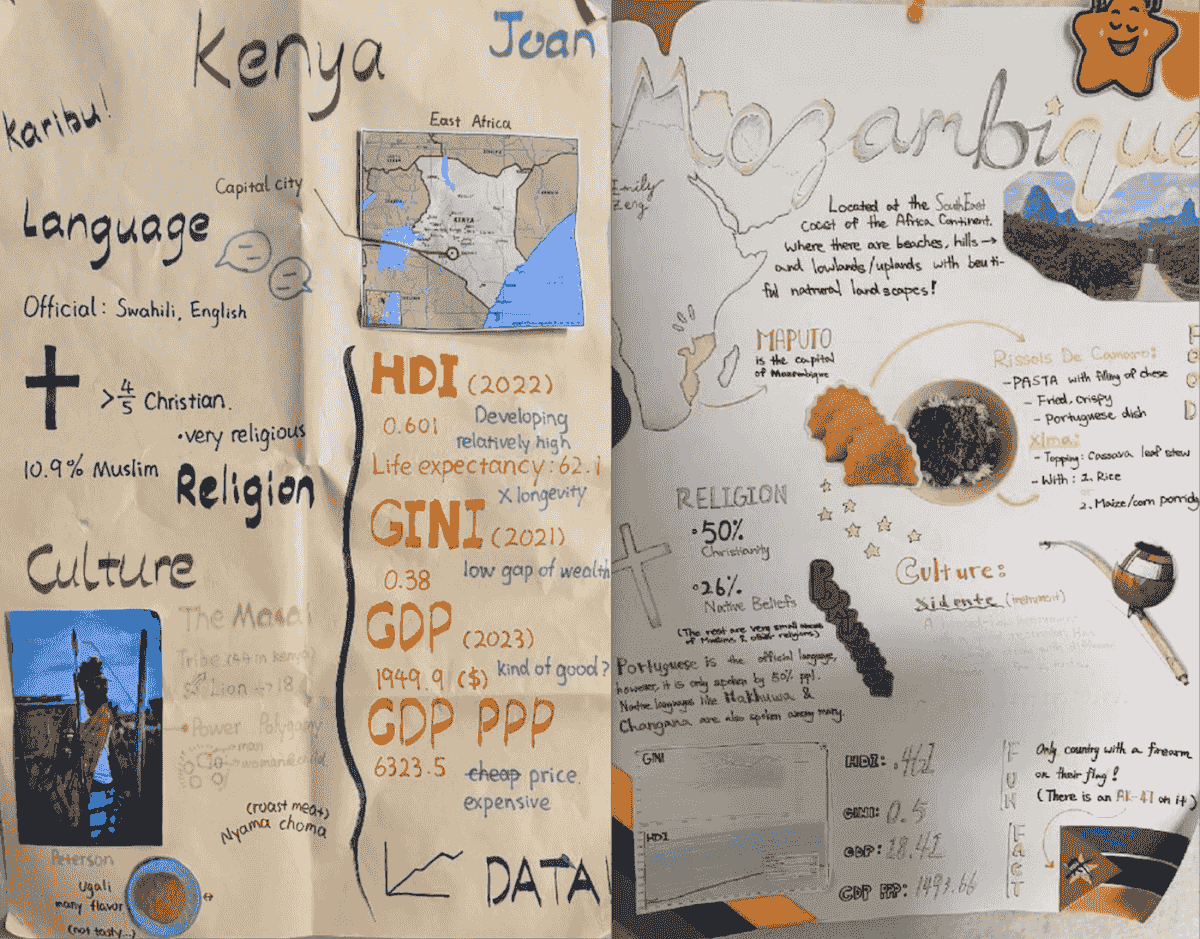 Kenya
Joan
Karibu!
East Africa
Capital city
KENYA
Language
Official: Swahili, English
>4/5 Christian.
•very religious
10.9% Muslim
Religion
Culture
The Masai
Tribe (44 in Kenya)
Lion 18
Power Polygamy
man
woman&child
(roast meat)
Nyama choma
Peterson
Ugali
many flavor
(not tasty...)
HDI (2022)
0.601 Developing
relatively high
Life expectancy: 62.1
X longevity
GINI (2021)
0.38 low gap of wealth
GDP (2023)
1949.9 ($) kind of good?
GDP PPP
6323.5 cheap price.
expensive
DATA!
Mozambique
Emily
Zeng
Located at the SouthEast
coast of the Africa Continent.
Where there are beaches, hills →
and lowlands/uplands with beuti-
ful natrural landscapes!
MAPUTO
is the capital
of Mozambique
FOOD
Rissois De Camarо:
-PASTA with filling of chese
- Fried, crispy
- Portuguese dish
Xima:
- Topping: Cassava leaf stew
- With: 1. Rice
or
2. Maize/corn porridg
RELIGION
•50%
Christianity
•26%
Native Beliefs
(The rest are very small
of Muslims & other religions)
Culture:
Xidente (instrument)
Portuguese is the official language,
however, it is only spoken by 50% ppl.
Native languages like Makhuwa &
Changana are also spoken among many.
GINI
HDI
HDI: .461
GINI: 0.5
GDP: 18.41
GDP PPP: 1493.66
FUN FACT
Only country with a firearm
on their flag!
(There is an AK-47 on it)